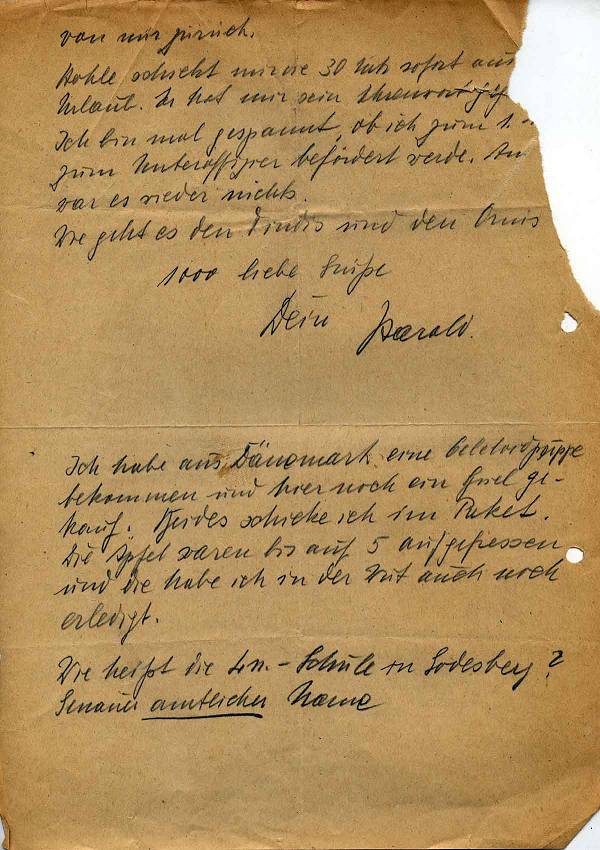 von mir zurück.
Kohle schickt mir die 30 Mk sofort aus
Urlaub. Er hat mir sein
Ich bin mal gespannt, ob ich zum 1.
zum Unteroffizier befördert werde. An
war es wieder nichts.
Wie geht es den Kindis und den Omis
1000 liebe Grüße
Dein Harald.
Ich habe aus Dänemark eine
bekommen und hier noch ein Spiel ge-
kauf. Beides schicke ich im Paket.
Die Äpfel waren bis auf 5 aufgefressen
und die habe ich in der Wut auch noch
erledigt.
Wie heißt die Ln.-Schule in Godesberg?
Genauer amtlicher Name